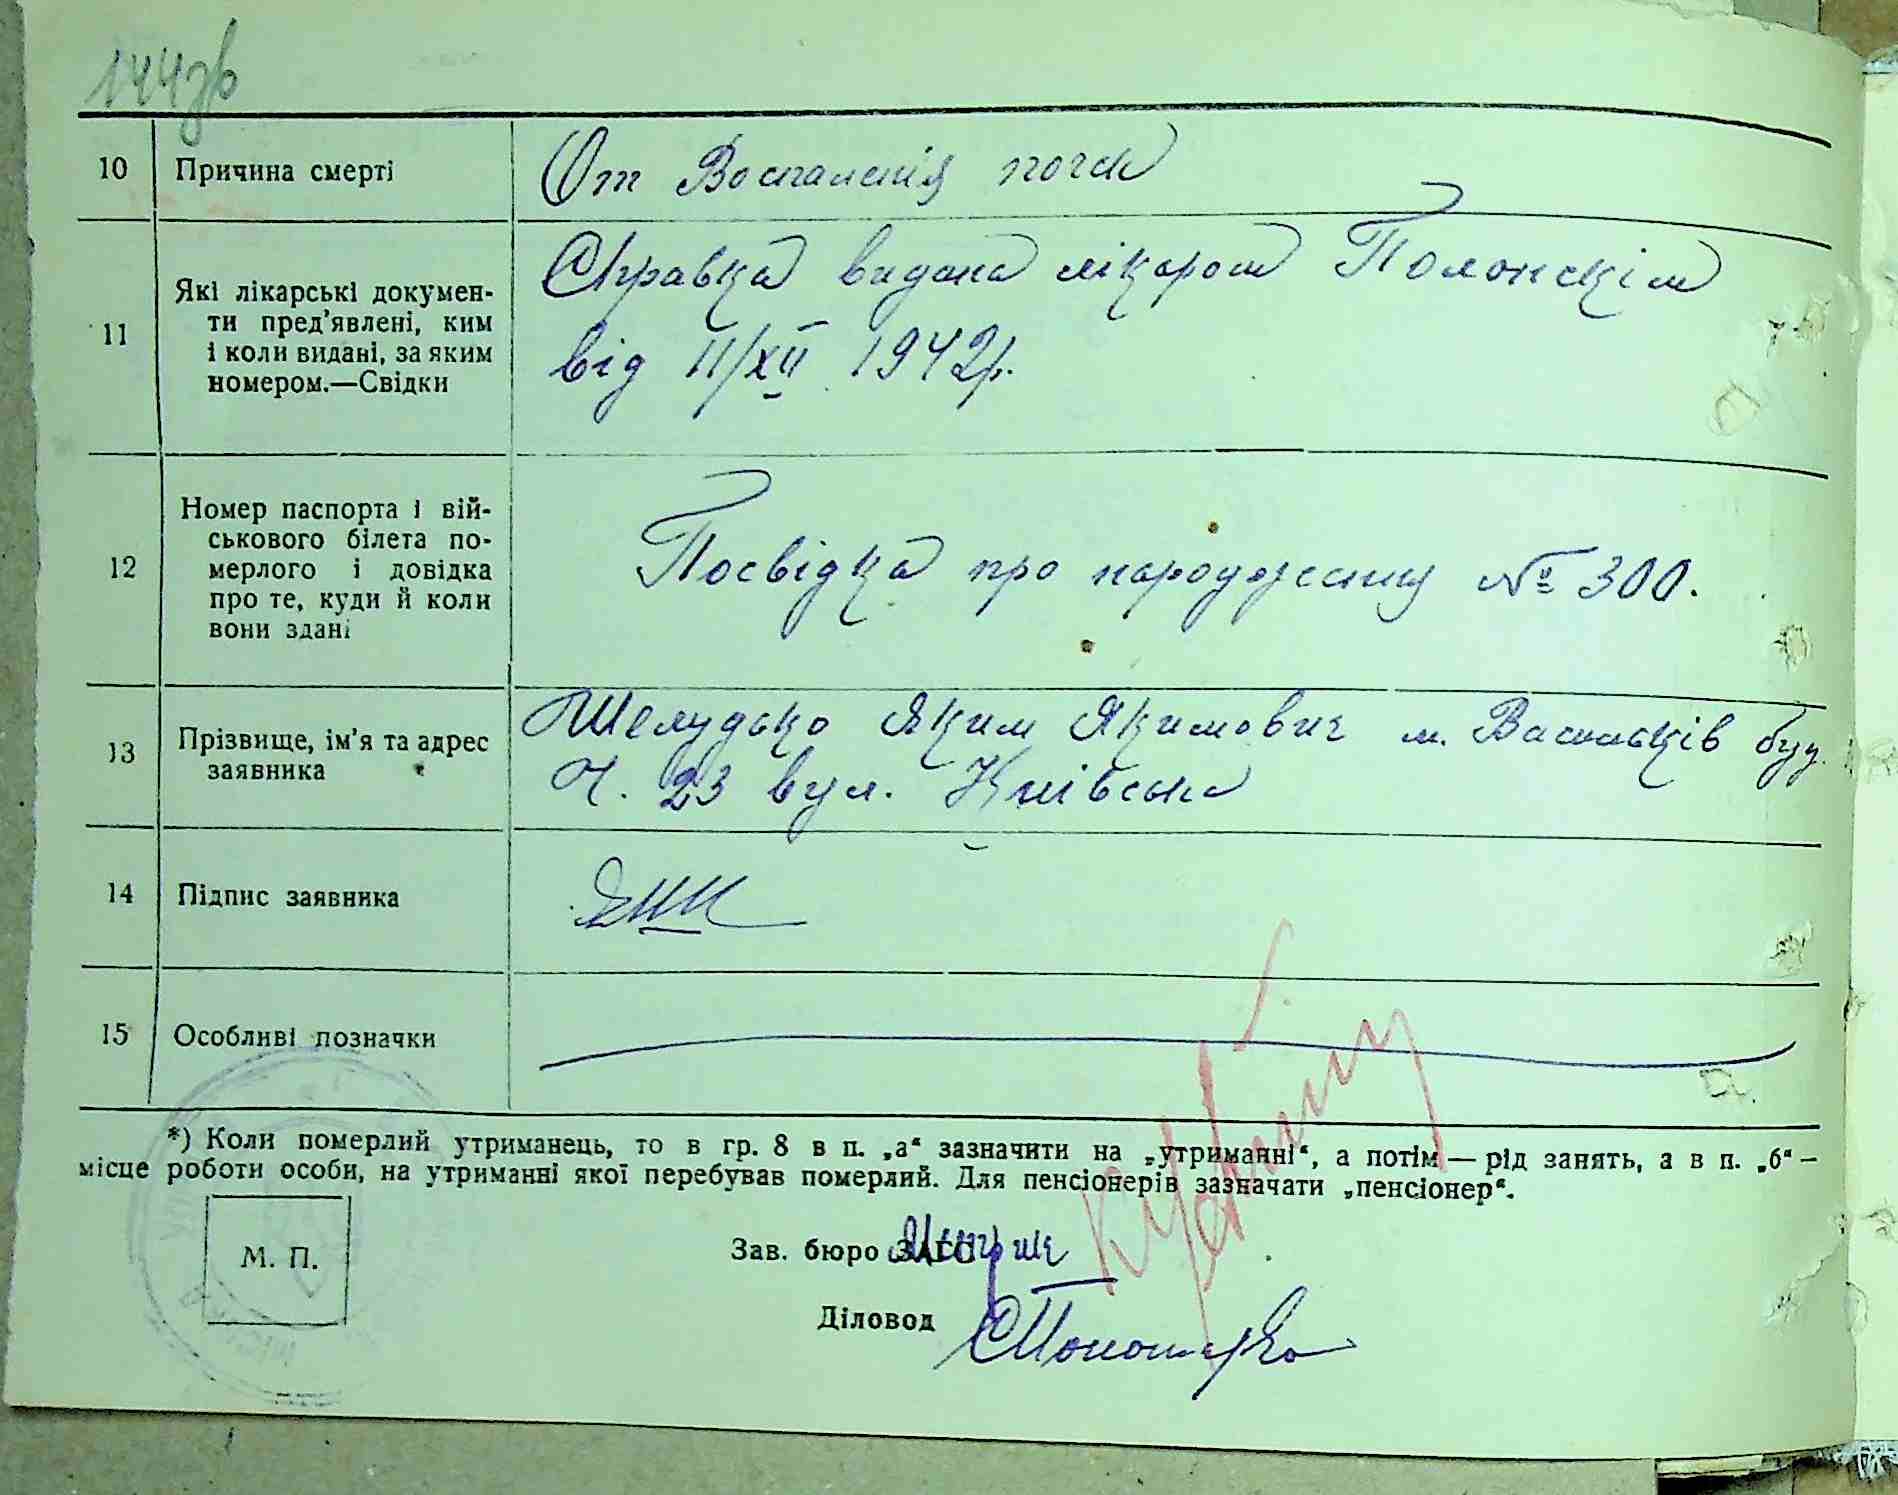 144зв
10 Причина смерті От Воспаления почки
11 Які лікарські докумен-
ти пред'явлені, ким
і коли видані, за яким
номером.—Свідки
Справка видана лікаром Полонскім
від 11/XII 1942р.
12 Номер паспорта і вій-
ськового білета по-
мерлого і довідка
про те, куди й коли
вони здані
Посвідка про народженну № 300.
13 Прізвище, ім'я та адрес
заявника
Шелудько Яким Якимович м. Васильків буд.
Ч. 23 вул. Київська
14 Підпис заявника
15 Особливі позначки
*) Коли померлий утриманець, то в гр. 8 в п. „а“ зазначити на „утриманні“, а потім — рід занять, а в п. „б“ –
місце роботи особи, на утриманні якої перебував померлий. Для пенсіонерів зазначати „пенсіонер“.
М. П.
Зав. бюро ЗАГС
Діловод